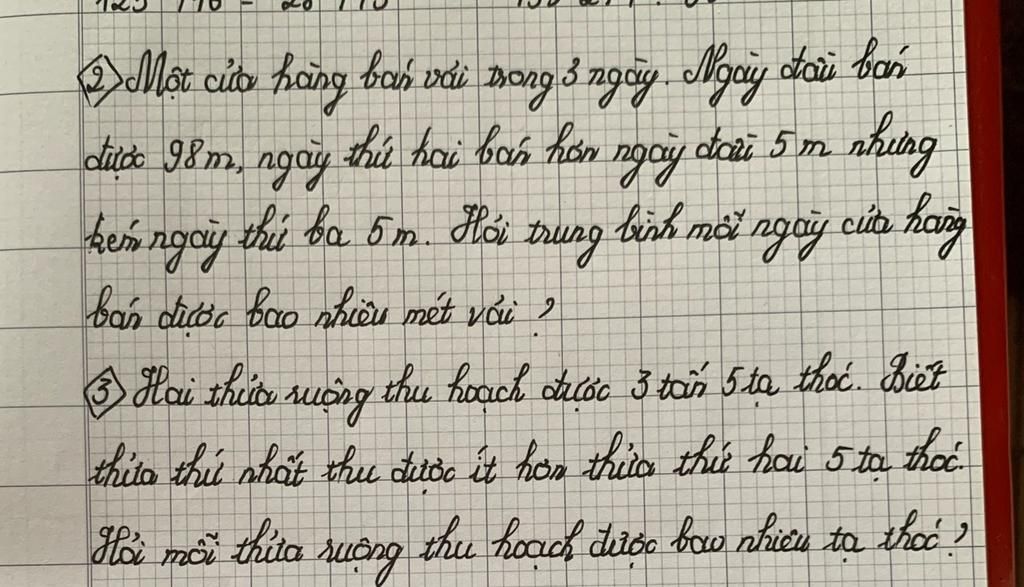 ② Một cửa hàng bán vải trong 3 ngày. Ngày đầu bán
được 98m, ngày thứ hai bán hơn ngày đầu 5 m nhưng
kém ngày thứ ba 5m. Hỏi trung bình mỗi ngày cửa hàng
bán được bao nhiêu mét vải ?
③ Hai thửa ruộng thu hoạch được 3 tấn 5 tạ thóc. Biết
thửa thứ nhất thu được ít hơn thửa thứ hai 5 tạ thóc.
Hỏi mỗi thửa ruộng thu hoạch được bao nhiêu tạ thóc ?